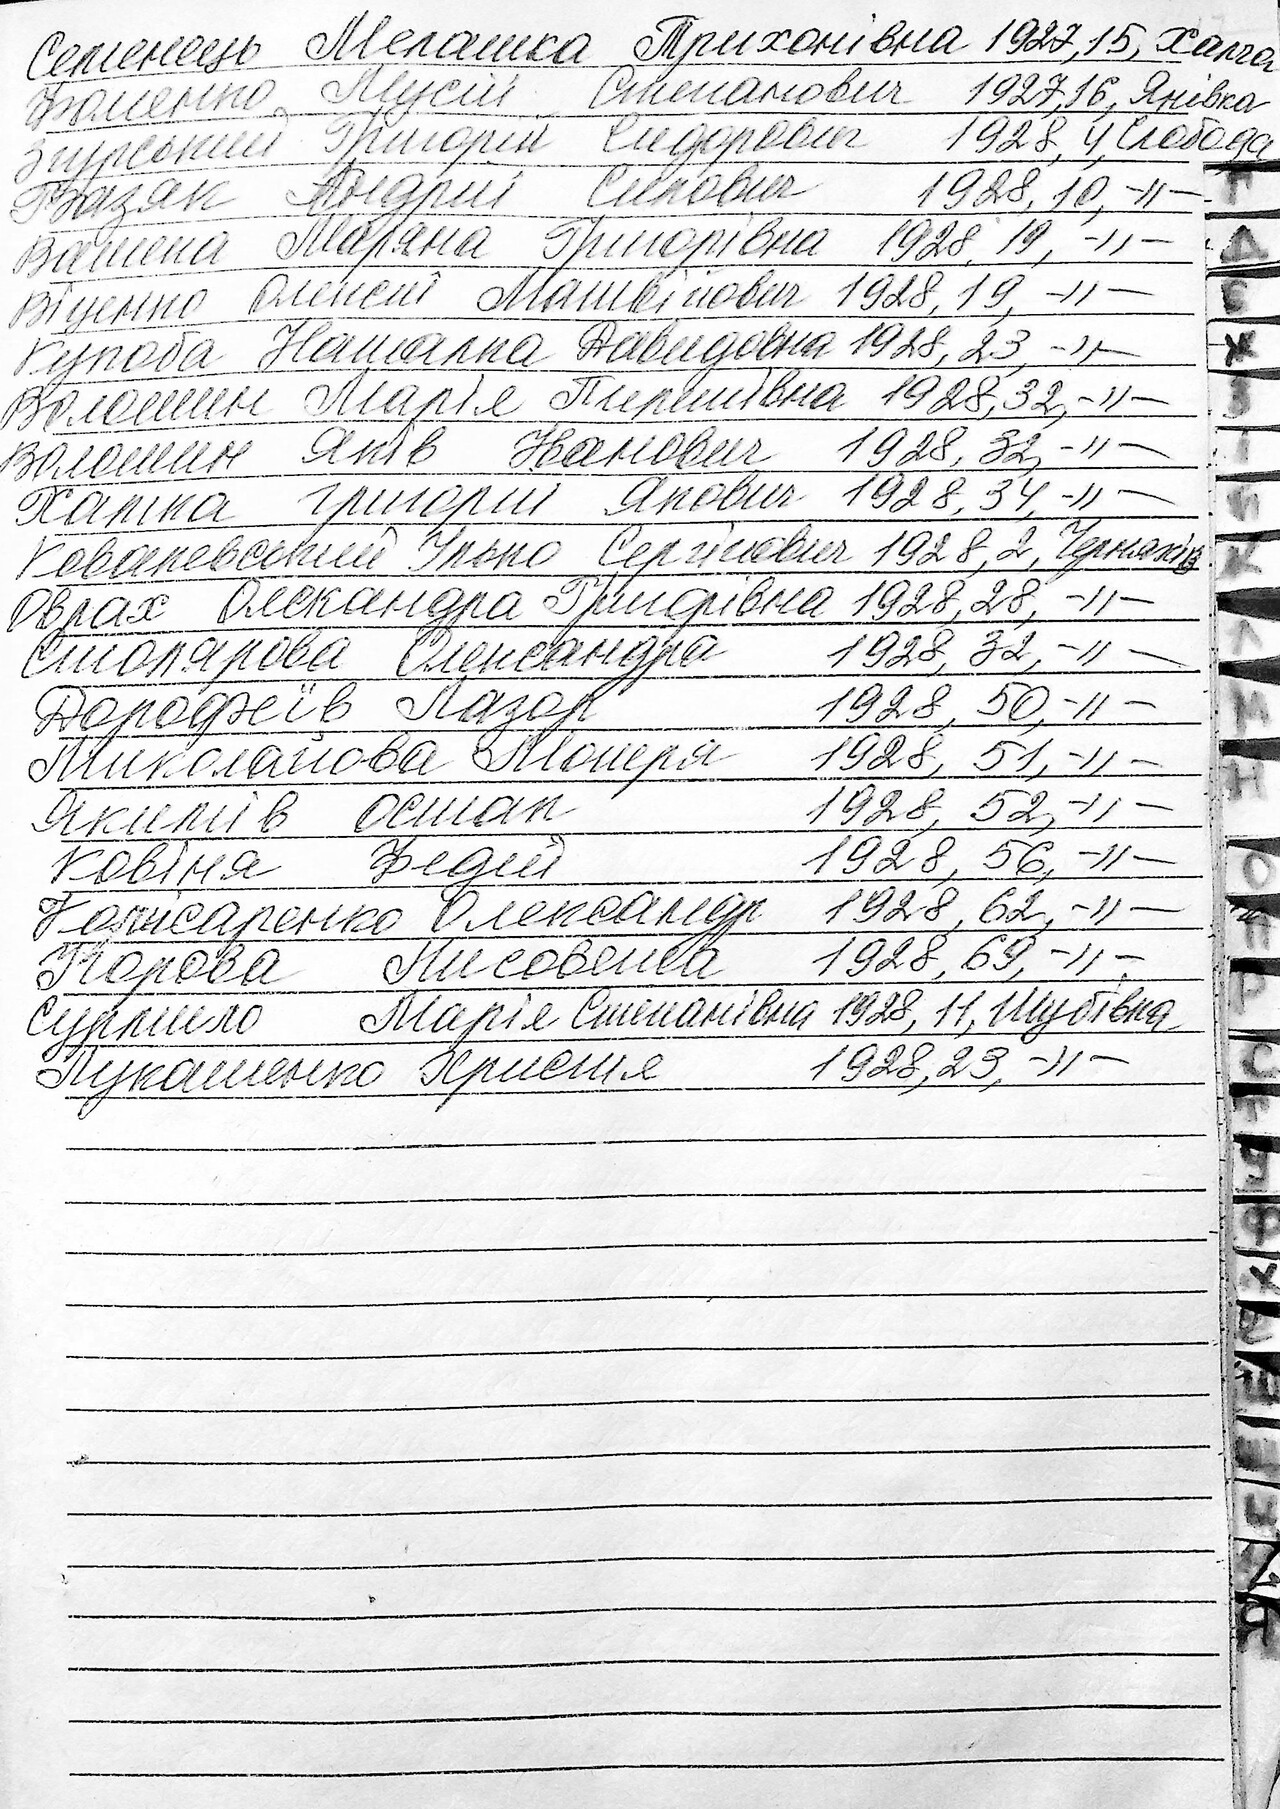 Семенець Мелашка Трихонівна 1927, 15, Халча
Фоменко Мусій Степанович 1927, 16, Янівка
Згурський Григорій Сидорович 1928, 4, Слобода
Базяк Андрій Силович 1928, 10, -//-
Ващена Маряна Григорівна 1928, 19, -//-
Віценко Олексій Матвійович 1928, 19, -//-
Купоба Наталка Давидовна 1928, 23, -//-
Волошин Марія Пирпіївна 1928, 32, -//-
Волошин Яків Іванович 1928, 32, -//-
Хапка Григорій Якович 1928, 34, -//-
Ковалевський Ілько Сергійович 1928, 2, Черняхів
Оврах Олександра Григрівна 1928, 28, -//-
Столярова Олександра 1928, 32, -//-
Дорофеїв Лазор 1928, 50, -//-
Миколайова Мотря 1928, 51, -//-
Якимів Остап 1928, 52, -//-
Ковіня Федій 1928, 56, -//-
Олександр 1928, 62, -//-
Торова Лисовета 1928, 69, -//-
Сурмило Марія Степанівна 1928, 11, Шубівка
Лукашенко Христя 1928, 23, -//-
Г
Д
Е
Ж
З
І
Й
К
Л
М
Н
О
П
Р
С
Т
У
Ф
Х
Я